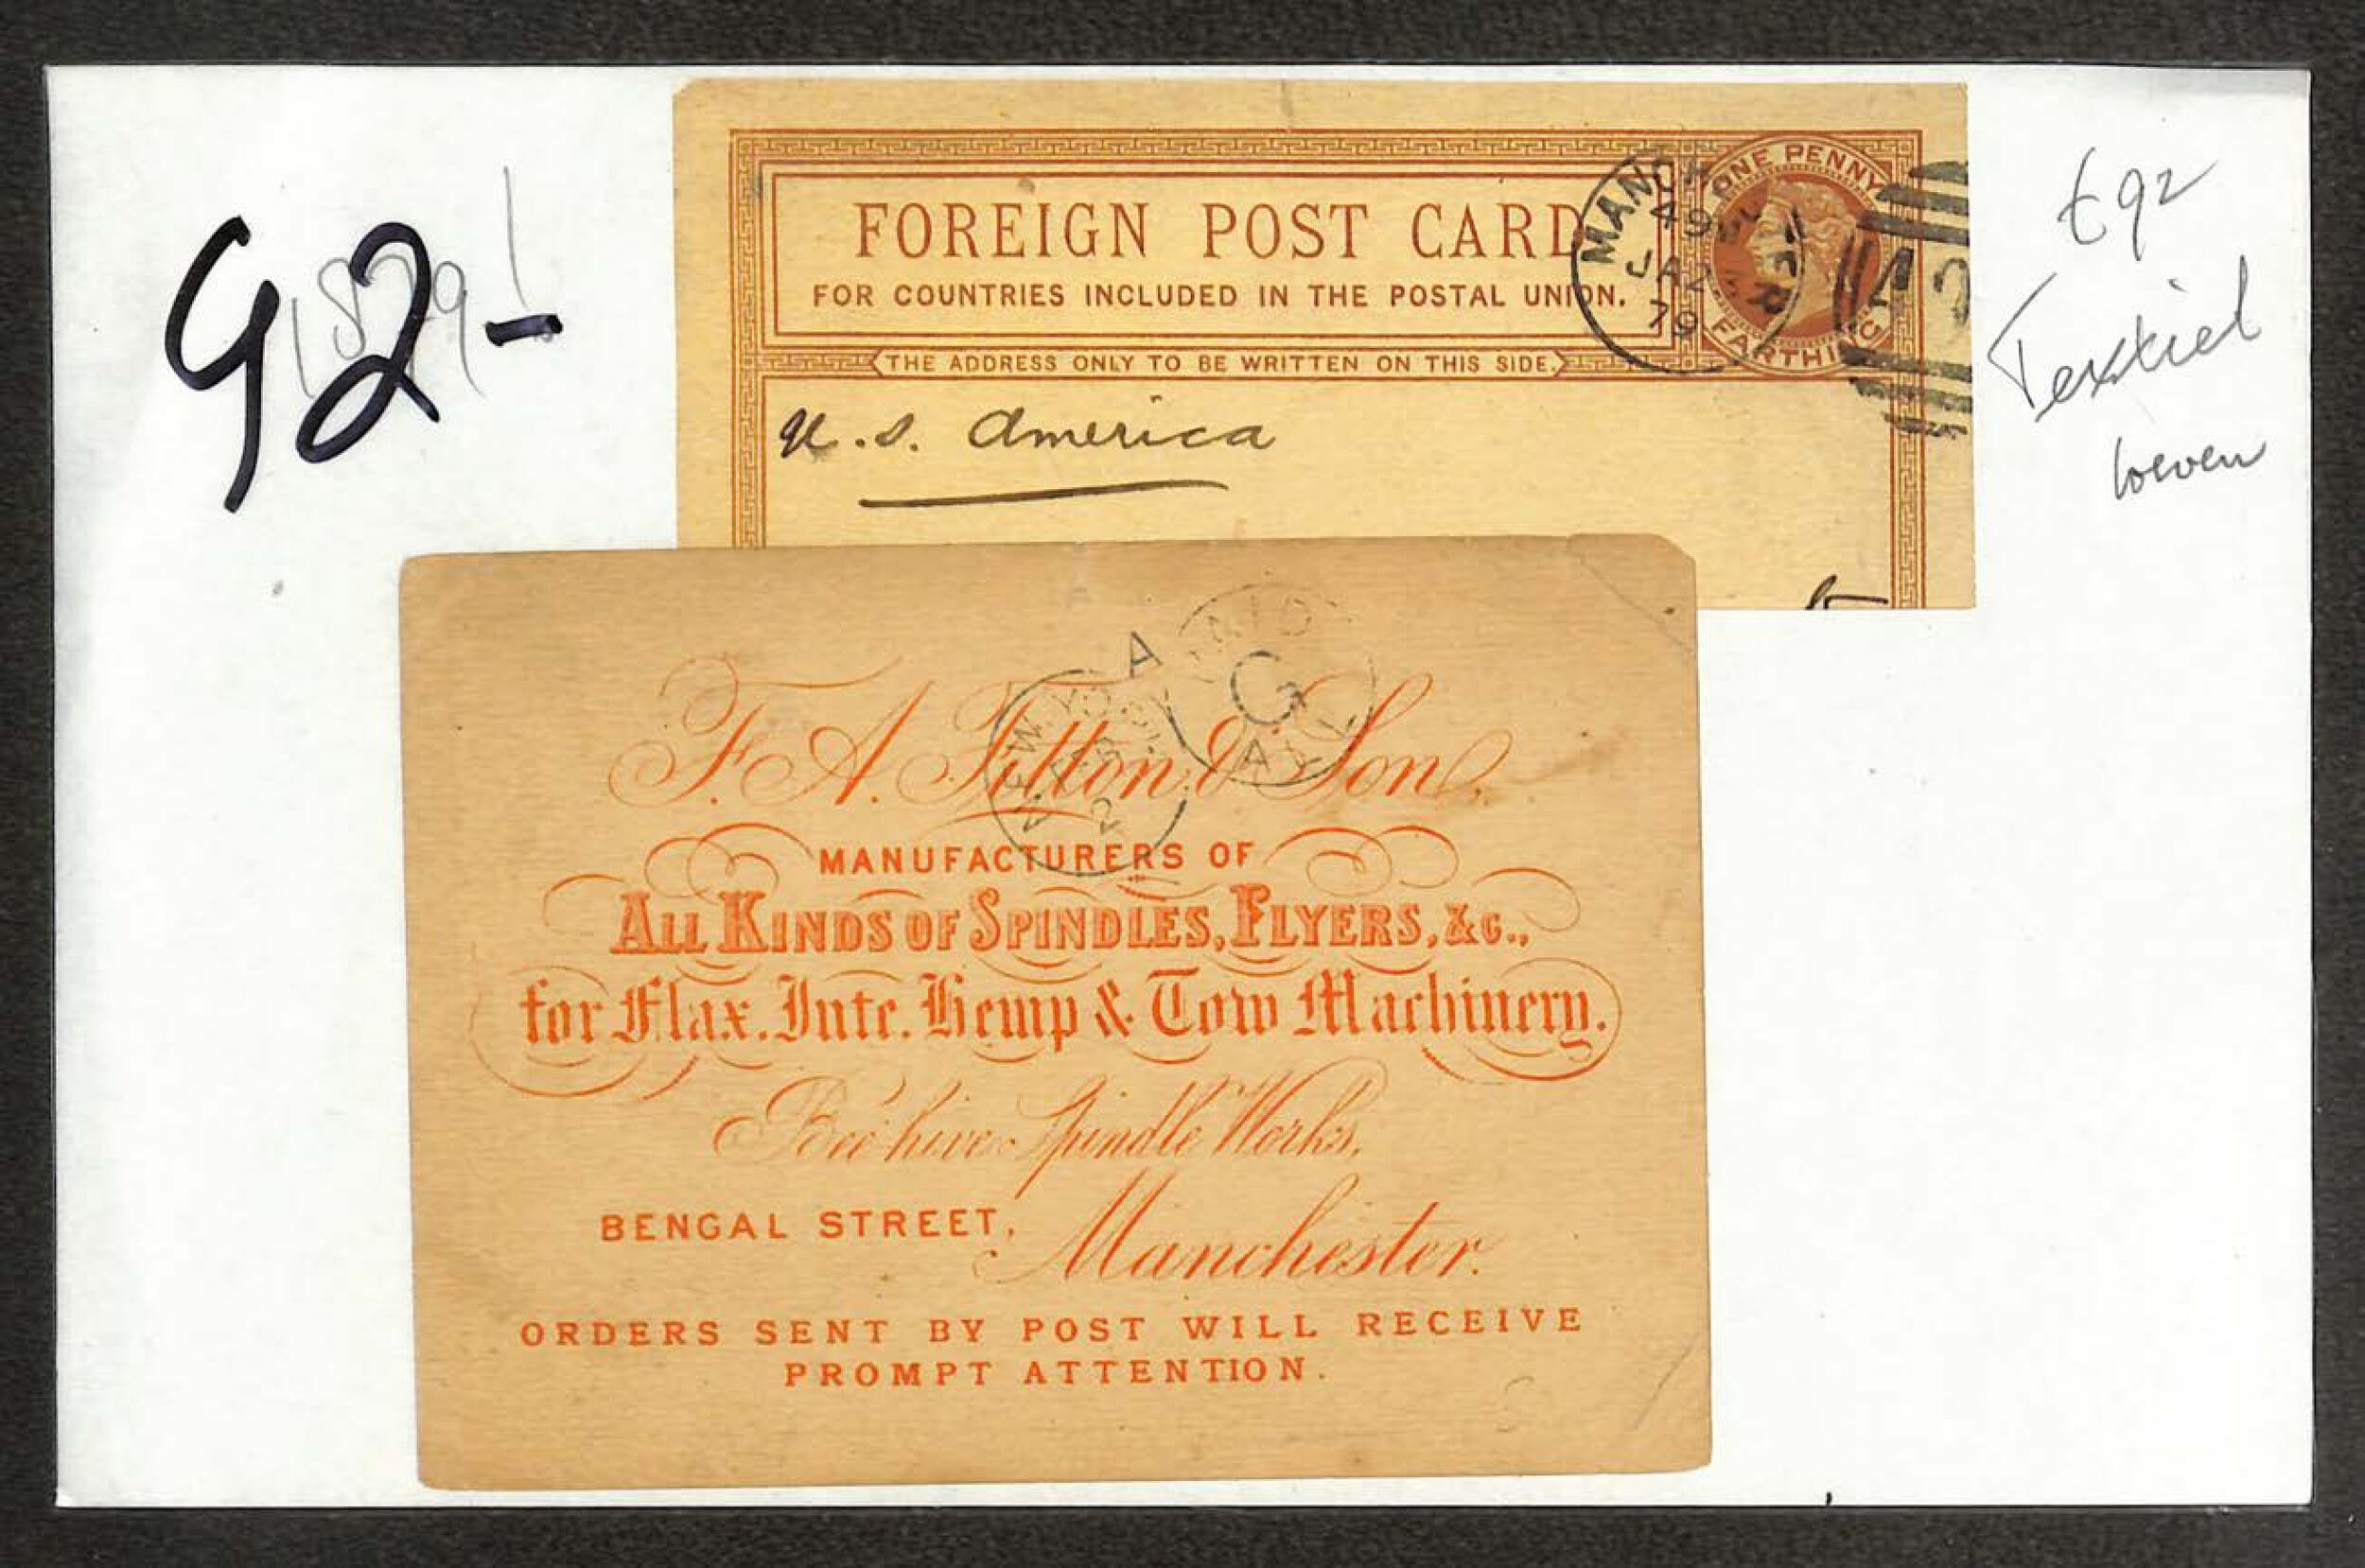 92-
1879
FOREIGN POST CARD
FOR COUNTRIES INCLUDED IN THE POSTAL UNION.
THE ADDRESS ONLY TO BE WRITTEN ON THIS SIDE.
MANCHESTER
49
JA 2
79
ONE PENNY
FARTHING
U.S. America
Textiel
weven
NEW YORK
A
PAID
G
ALL
2
F. A. Titton & Son,
MANUFACTURERS OF
ALL KINDS OF SPINDLES, FLYERS, &C.,
for Flax, Jute, Hemp & Tow Machinery.
Beehive Spindle Works,
BENGAL STREET,
Manchester.
ORDERS SENT BY POST WILL RECEIVE
PROMPT ATTENTION.